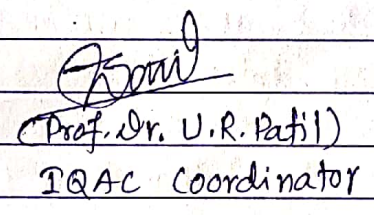 (Prof. Dr. U.R. Patil)
IQAC Coordinator